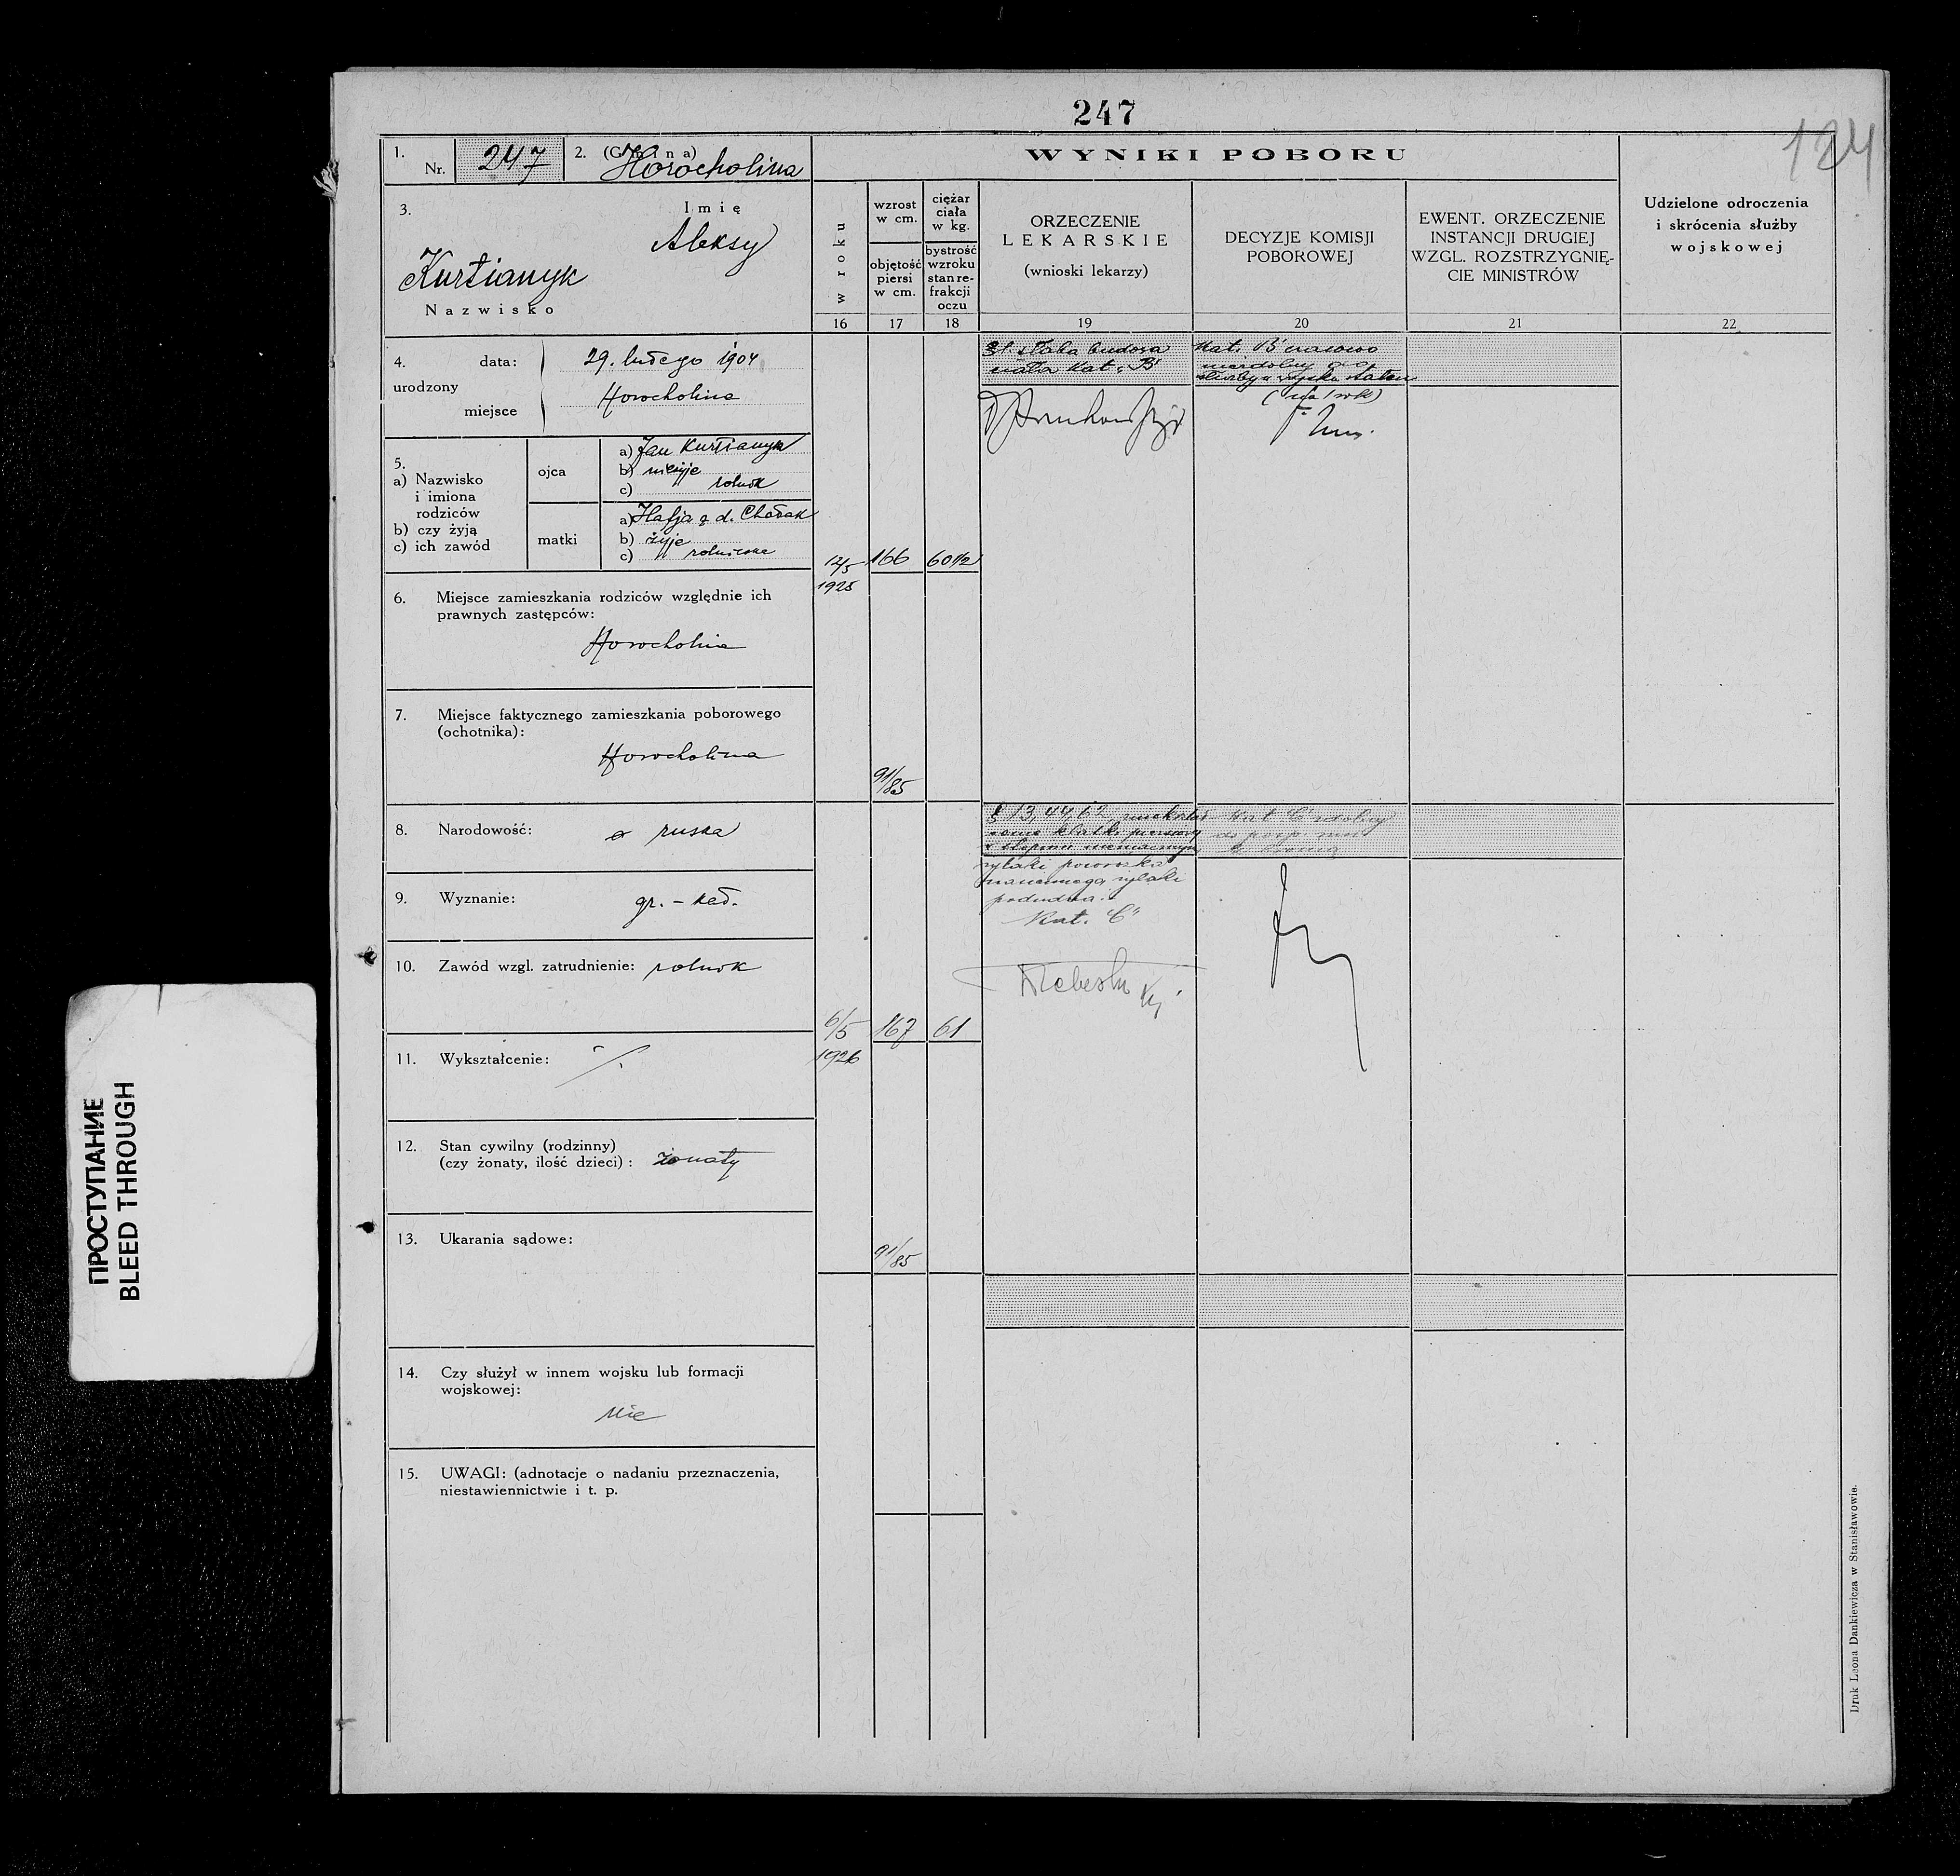 247
124
1.
Nr. 247
2. (Gmina)
Horocholina
WYNIKI POBORU
3.
Imię
Aleksy
Kurtianyk
Nazwisko
w roku
wzrost
w cm.
objętość
piersi
w cm.
ciężar
ciała
w kg.
bystrość
wzroku
stan re-
frakcji
oczu
ORZECZENIE
LEKARSKIE
(wnioski lekarzy)
DECYZJE KOMISJI
POBOROWEJ
EWENT. ORZECZENIE
INSTANCJI DRUGIEJ
WZGL. ROZSTRZYGNIĘ-
CIE MINISTRÓW
Udzielone odroczenia
i skrócenia służby
wojskowej
16 17 18 19 20 21 22
4. data: 29. lutego 1904
urodzony
miejsce Horocholina
5.
a) Nazwisko
i imiona
rodziców
b) czy żyją
c) ich zawód
ojca
a) Jan Kurtianyk
b) nieżyje
c) rolnik
matki
a) Hafja z d. Chołak
b) żyje
c) rolniczka
6. Miejsce zamieszkania rodziców względnie ich
prawnych zastępców:
Horocholina
7. Miejsce faktycznego zamieszkania poborowego
(ochotnika):
Horocholina
8. Narodowość: ruska
9. Wyznanie: gr.-kat.
10. Zawód wzgl. zatrudnienie: rolnik
11. Wykształcenie: ./.
12. Stan cywilny (rodzinny)
(czy żonaty, ilość dzieci): żonaty
13. Ukarania sądowe:
14. Czy służył w innem wojsku lub formacji
wojskowej:
nie
15. UWAGI: (adnotacje o nadaniu przeznaczenia,
niestawiennictwie i t. p.
12/5 166 60 1/2
1925
91/85
słaba budowa
ciała Kat. B
Kat. B czasowo
niezdolny do
służby w wojsku stałem
(na 1 rok)
6/5 167 61
1926
91/85
§ 13, 44, 62,
klatki piersiowej
żylaki powrózka
nasiennego, żylaki
podudzia.
Kat. "C"
Kat C zdolny
do posp. rusz.
z bronią
Druk Leona Dankiewicza w Stanisławowie.
ПРОСТУПАНИЕ
BLEED THROUGH